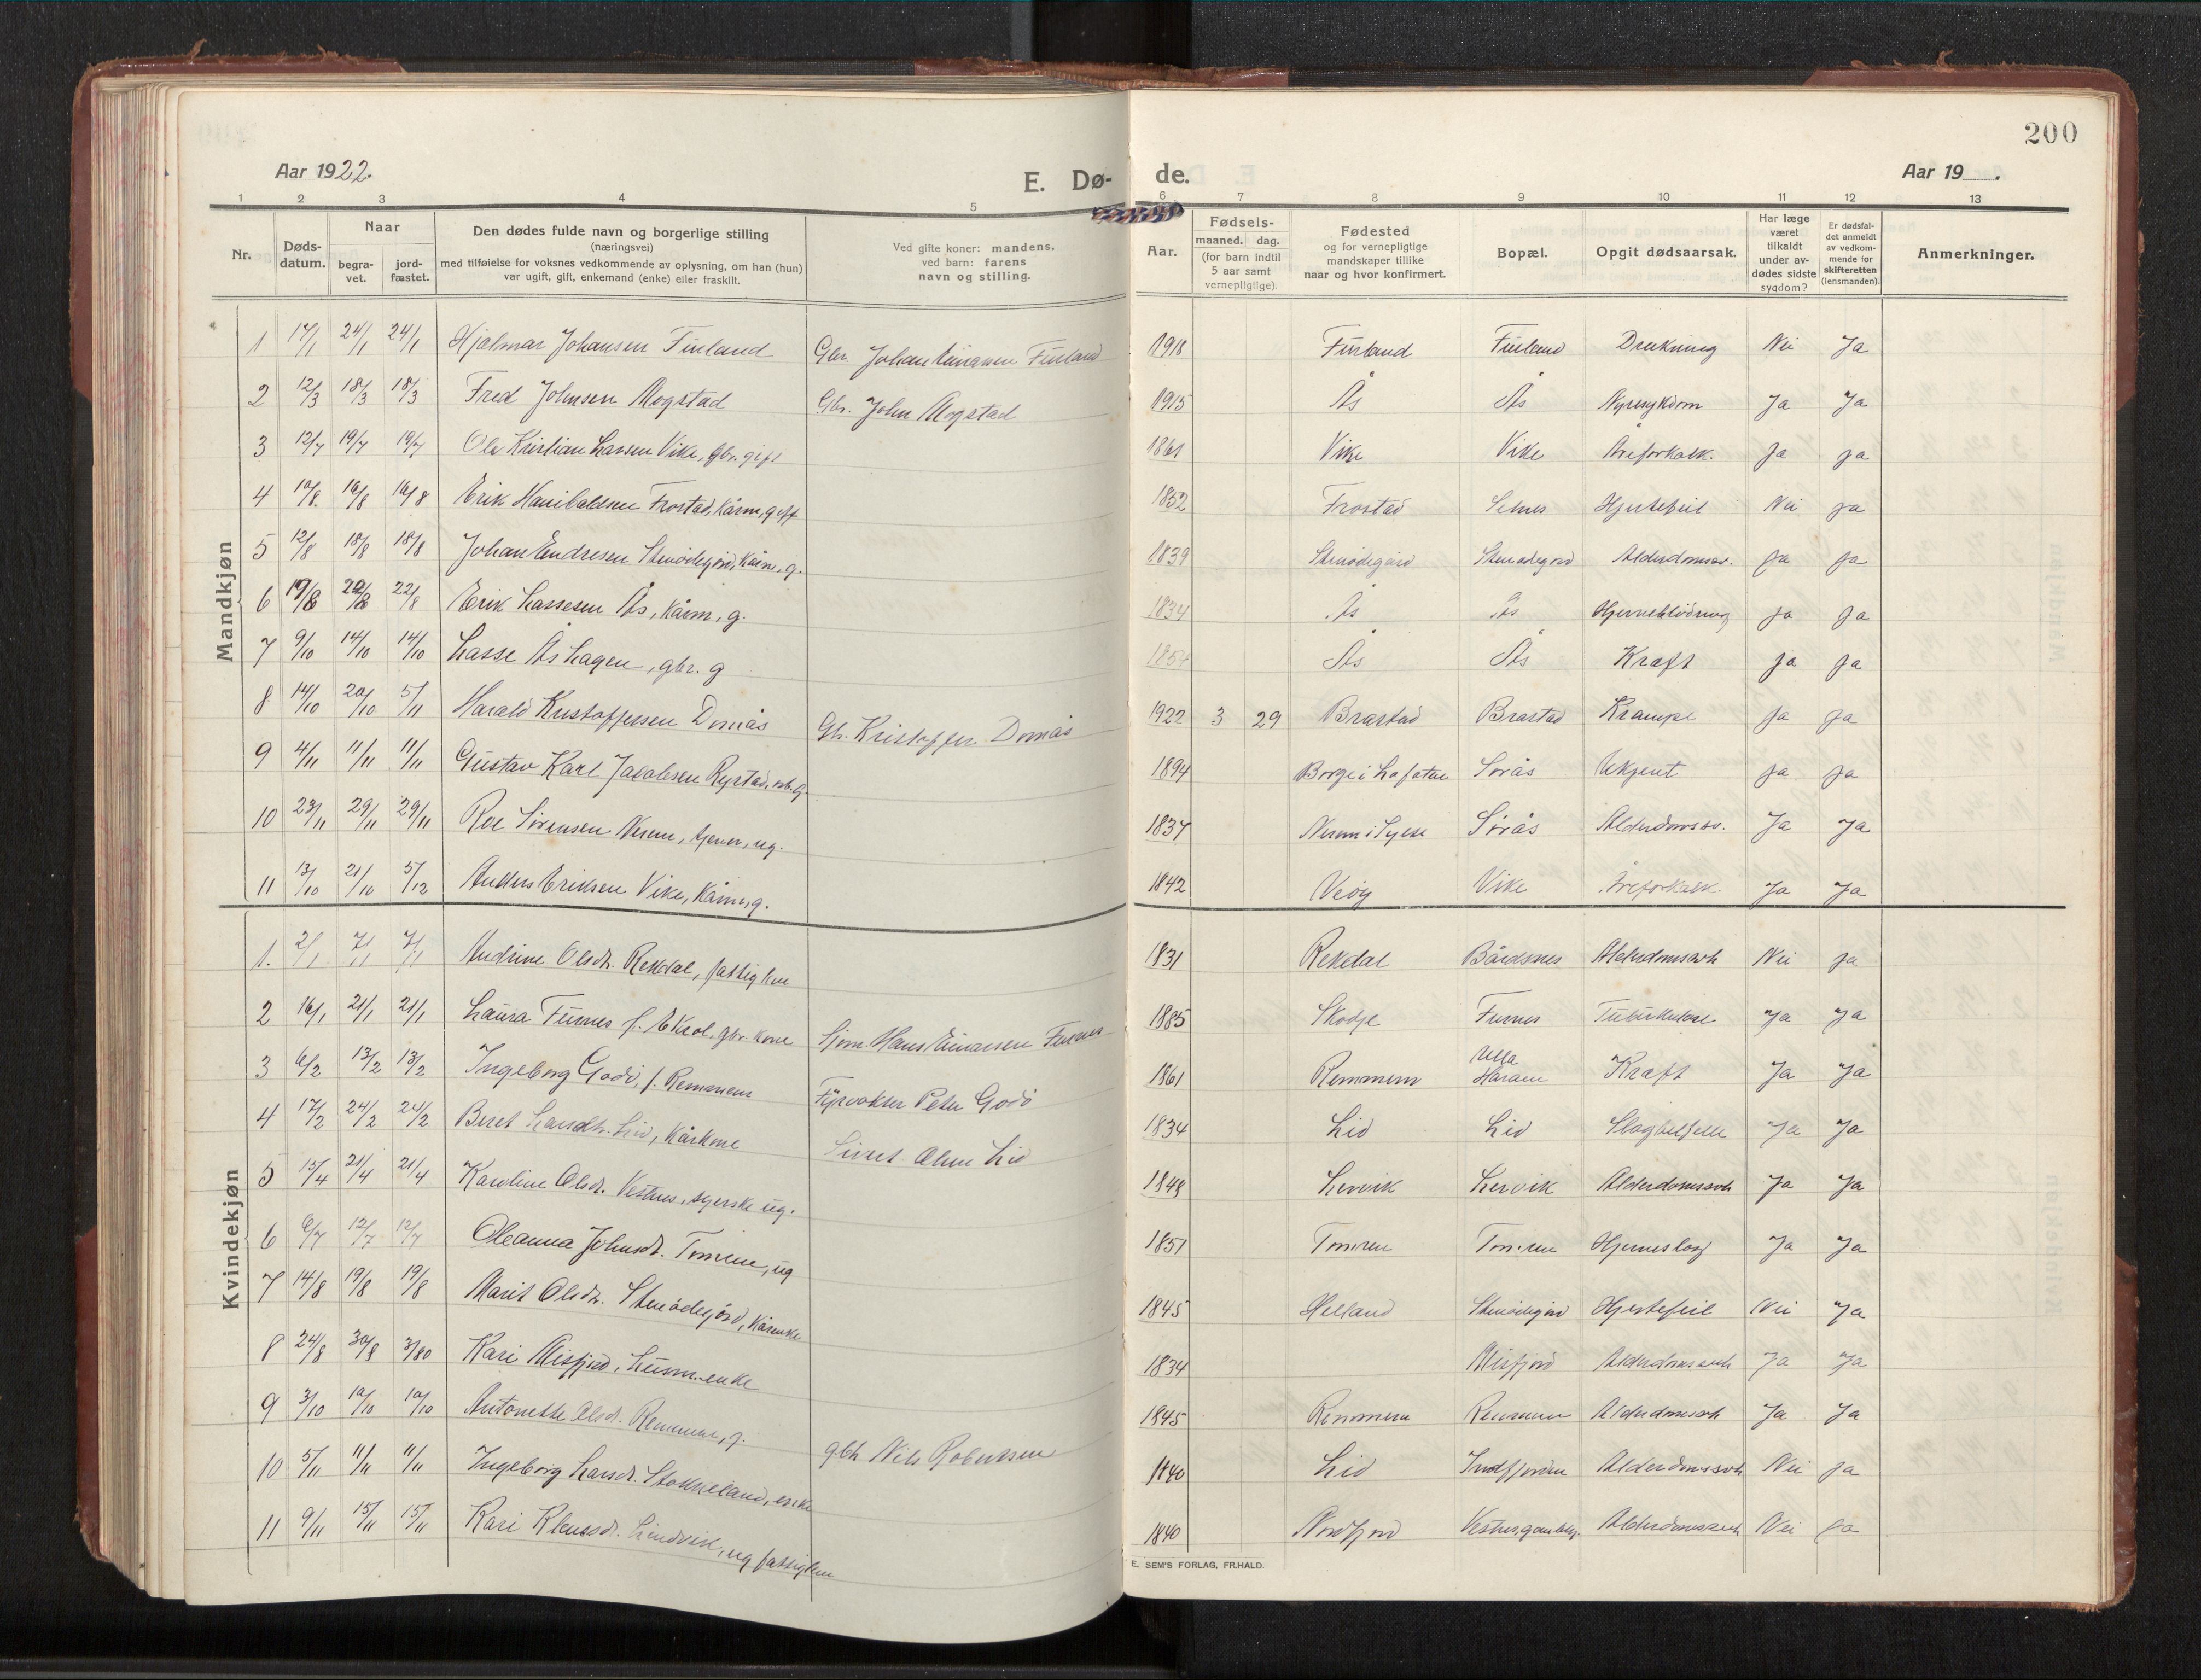 200
Aar 1922. E. Dø- de. Aar 19 .
1 2 3 4 5 6 7 8 9 10 11 12 13
Nr.
Døds-
datum.
Naar
begra-
vet.
jord-
fæstet.
Den dødes fulde navn og borgerlige stilling
(næringsvei)
med tilføielse for voksnes vedkommende av oplysning, om han (hun)
var ugift, gift, enkemand (enke) eller fraskilt.
Ved gifte koner: mandens.
ved barn: farens
navn og stilling.
Aar.
Fødsels-
maaned. dag.
(for barn indtil
5 aar samt
vernepligtige)
Fødested
og for vernepligtige
mandskaper tillike
naar og hvor konfirmert.
Bopæl.
Opgit dødsaarsak.
Har læge
været
tilkaldt
under av-
dødes sidste
sygdom?
Er dødsfal-
det anmeldt
av vedkom-
mende for
skifteretten
(lensmanden).
Anmerkninger.
Mandkjøn
1 17/1 24/1 24/1 Hjalmar Johansen Furland Gbr. Johan Furland 1918 Furland Furland Drukning Nei Ja
2 12/3 18/3 18/3 Fred Johnsen Mogstad Gbr. John Mogstad 1915 Ås Ås Nyresykdom Ja Ja
3 12/7 19/7 19/7 Ole Kristian Larsen Vike, gbr. gift 1861 Vike Vike Åreforkalk. Ja ja
4 10/8. 16/8 16/8 Erik Hanibaldsen Frostad, kårm, gift 1852 Frostad Selnes Hjertefeil Nei ja
5 12/8 18/8 18/8 Johan Endresen Stenødegård, kårm. g. 1839 Stenødegård Stenødegård Alderdomssv. ja ja
6 17/8 22/8 22/8 Erik Lassesen Ås, kårm, g. 1834 Ås Ås Hjerneblødning ja ja
7 9/10 14/10 14/10 Lasse Åshagen, gbr. g 1854 Ås Ås Kræft ja ja
8 14/10 20/10 5/11 Harald Kristoffersen Domås Gb. Kristoffer Domås 1922 3 29 Brastad Brastad Krampe ja ja
9 4/11 11/11 11/11 Gustav Karl Jacobsen Rystad, g. 1894 Borge i Lofoten Sørås Ukjent ja ja
10 23/11 29/11 29/11 Roe Sørensen Nerem, tjener, ug. 1837 Sørås Alderdomssv. Ja Ja
11 13/10 21/10 5/12 Anders Eriksen Vike, kårm, g. 1842 Veøy Vike Åreforkalk. Ja Ja
Kvindekjøn
1. 2/1 7/1 7/1 Andrine Olsdt. Rekdal, fattiglem 1831 Rekdal Bårdsnes Alderdomssvh Nei ja
2 16/1 21/1 21/1 Laura Furnes f. gbr. kone Hans Furnes 1885 Skodje Furnes Tuberkulose ja ja
3 6/2 13/2 13/2 Ingeborg Godø, f. Remmem Fyrvokter Peter Godø 1861 Remmem Ulla Haram Kræft Ja Ja
4 17/2 24/2 24/2 Beret Larsdt. Lid, kårkone Sivert Olsen Lid 1834 Lid Lid Slagtilfelle Ja Ja
5 15/4 21/4 21/4 Karoline Olsdt. Vestnes, syerske ug. 1848 Lervik Lervik Alderdomssvh Ja Ja
6 6/7 12/7 12/7 Oleanna Johnsdt. Tomren, ug 1851 Tomren Tomren Hjerneslag Ja Ja
7 14/8 19/8 19/8 Marit Olsdt. Stenødegård, kårenke 1845 Helland Stenødegård Hjertefeil Nei Ja
8 24/8 30/8 3/80 Kari Misfjord, husm.enke 1834 Misfjord Alderdomssvh Ja Ja
9 3/10 10/10 10/10 Antonette Olsdt. Remmem, g. gbr Nils Robertsen 1845 Remmem Remmem Alderdomssvh Ja Ja
10 5/11 11/11 11/11 Ingeborg Larsdt. Stokkeland, enke 1840 Lid Indfjorden Alderdomssvh Nei ja
11 9/11 15/11 15/11 Kari Klausdt. Lindvik, ug fattiglem 1840 Nordfjord Alderdomssvh Nei ja
E. SEM'S FORLAG, FR.HALD.